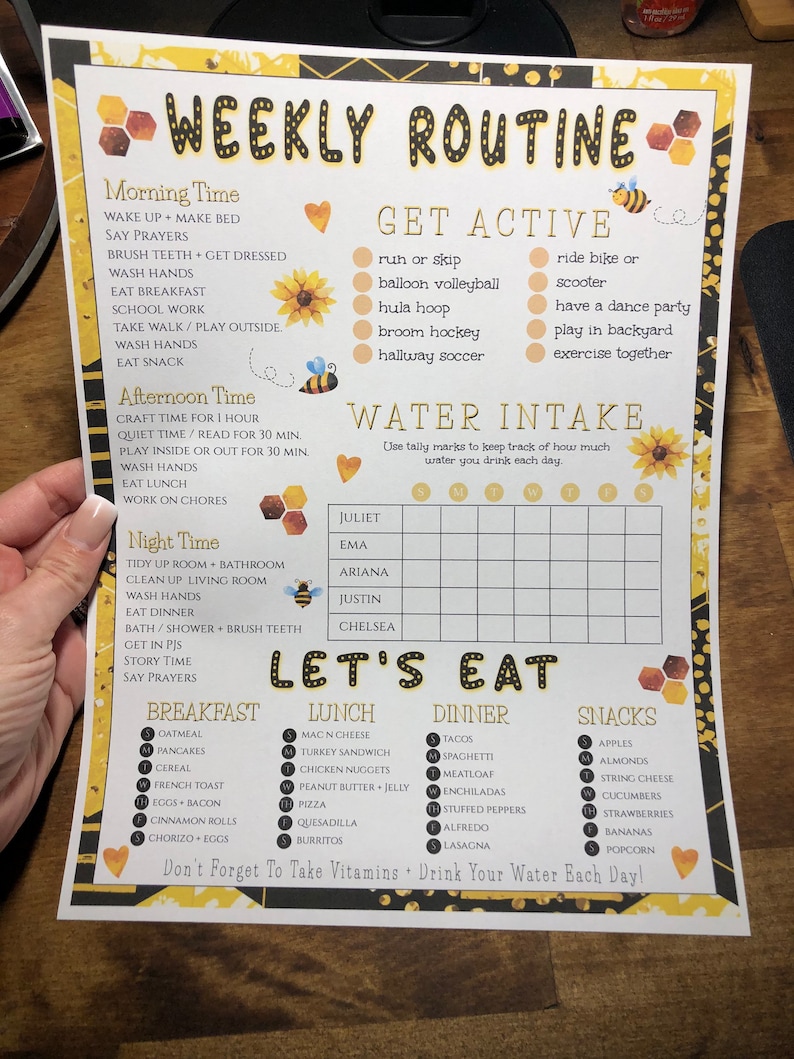 WEEKLY ROUTINE
Morning Time
WAKE UP + MAKE BED
SAY PRAYERS
BRUSH TEETH + GET DRESSED
WASH HANDS
EAT BREAKFAST
SCHOOL WORK
TAKE WALK / PLAY OUTSIDE.
WASH HANDS
EAT SNACK
Afternoon Time
CRAFT TIME FOR 1 HOUR
QUIET TIME / READ FOR 30 MIN.
PLAY INSIDE OR OUT FOR 30 MIN.
WASH HANDS
EAT LUNCH
WORK ON CHORES
Night Time
TIDY UP ROOM + BATHROOM
CLEAN UP LIVING ROOM
WASH HANDS
EAT DINNER
BATH / SHOWER + BRUSH TEETH
GET IN PJS
STORY TIME
SAY PRAYERS
GET ACTIVE
run or skip
balloon volleyball
hula hoop
broom hockey
hallway soccer
ride bike or
scooter
have a dance party
play in backyard
exercise together
WATER INTAKE
Use tally marks to keep track of how much
water you drink each day.
S M T W T F S
JULIET
EMA
ARIANA
JUSTIN
CHELSEA
LET'S EAT
BREAKFAST
S OATMEAL
M PANCAKES
T CEREAL
W FRENCH TOAST
TH EGGS + BACON
F CINNAMON ROLLS
S CHORIZO + EGGS
LUNCH
S MAC N CHEESE
M TURKEY SANDWICH
T CHICKEN NUGGETS
W PEANUT BUTTER + JELLY
TH PIZZA
F QUESADILLA
S BURRITOS
DINNER
S TACOS
M SPAGHETTI
T MEATLOAF
W ENCHILADAS
TH STUFFED PEPPERS
F ALFREDO
S LASAGNA
SNACKS
S APPLES
M ALMONDS
T STRING CHEESE
W CUCUMBERS
TH STRAWBERRIES
F BANANAS
S POPCORN
Don't Forget To Take Vitamins + Drink Your Water Each Day!
1 fl oz / 29 mL